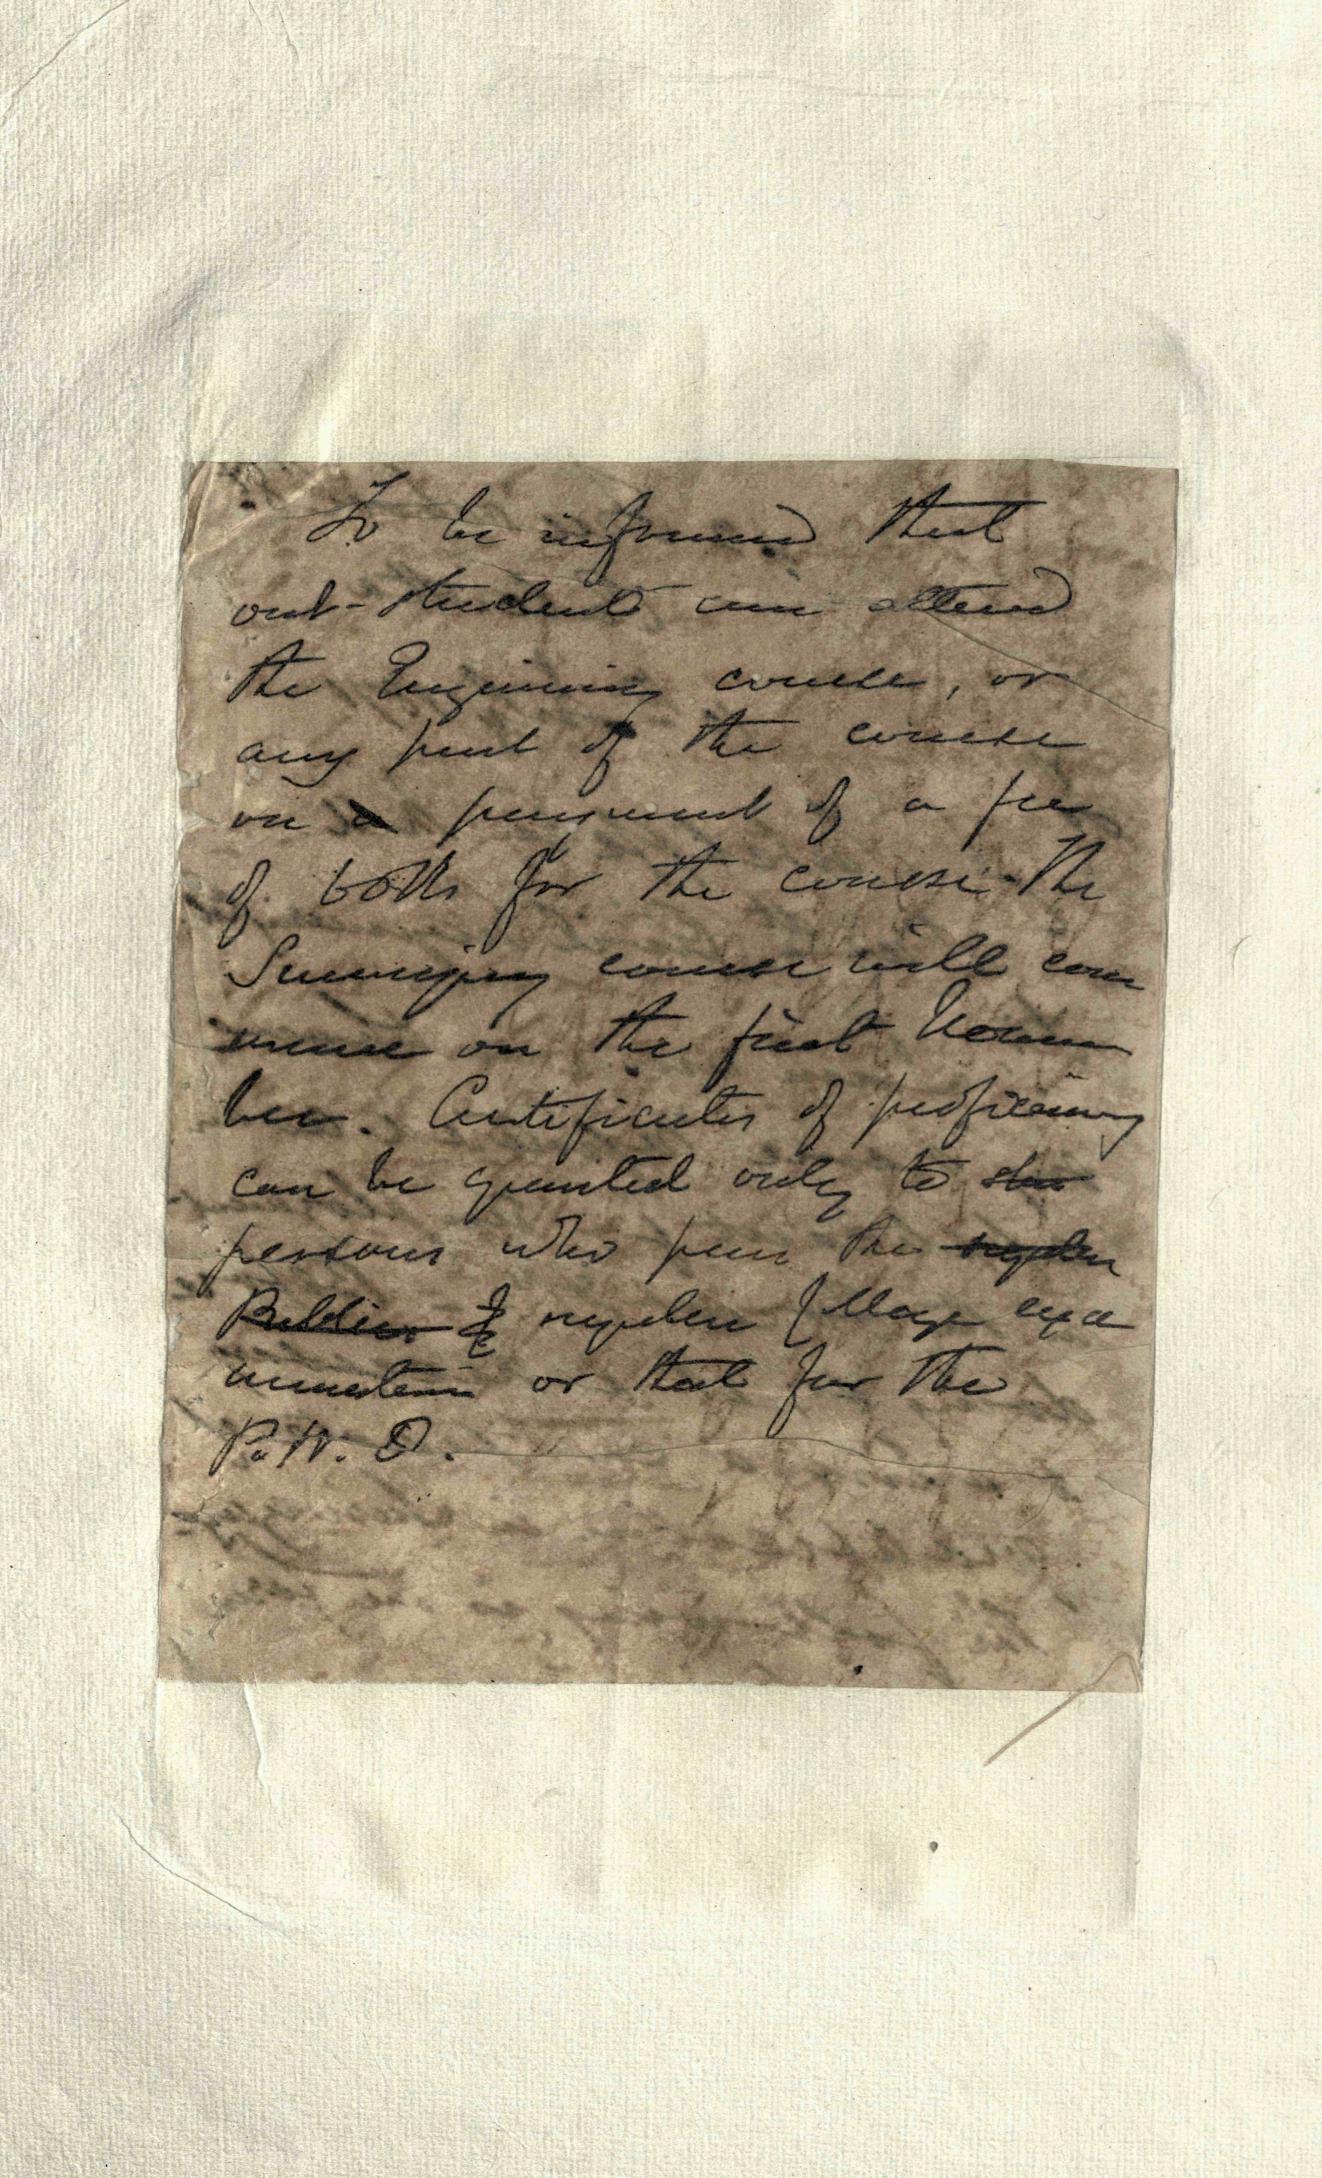 To be informed that
out-students can attend
the Engineering course, or
any part of the course
on a payment of a fee
of 60 Rs for the course. The
Surveying course will com
mence on the first Novem
ber. Certificates of proficiency
can be granted only to stu
persons who pass the regular
& regular College exa
mination or that for the
P. W. D.